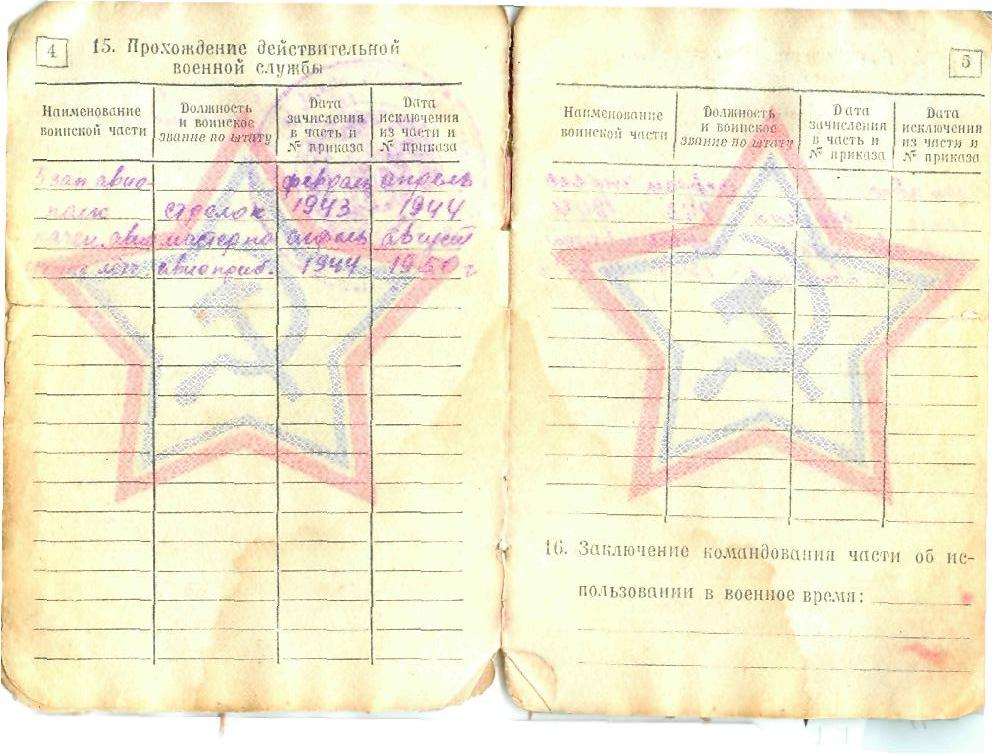 4
15. Прохождение действительной
военной службы
Наименование
воинской части
Должность
и воинское
звание по штату
Дата
зачисления
в часть и
№ приказа
Дата
исключения
из части и
№ приказа
зап авио- февраль апрель
полк стрелок 1943 1944
мастер по апрель август
авиоприб. 1944 1950 г
5
Наименование
воинской части
Должность
и воинское
звание по штату
Дата
зачисления
в часть и
№ приказа
Дата
исключения
из части и
№ приказа
16. Заключение командования части об ис-
пользовании в военное время: